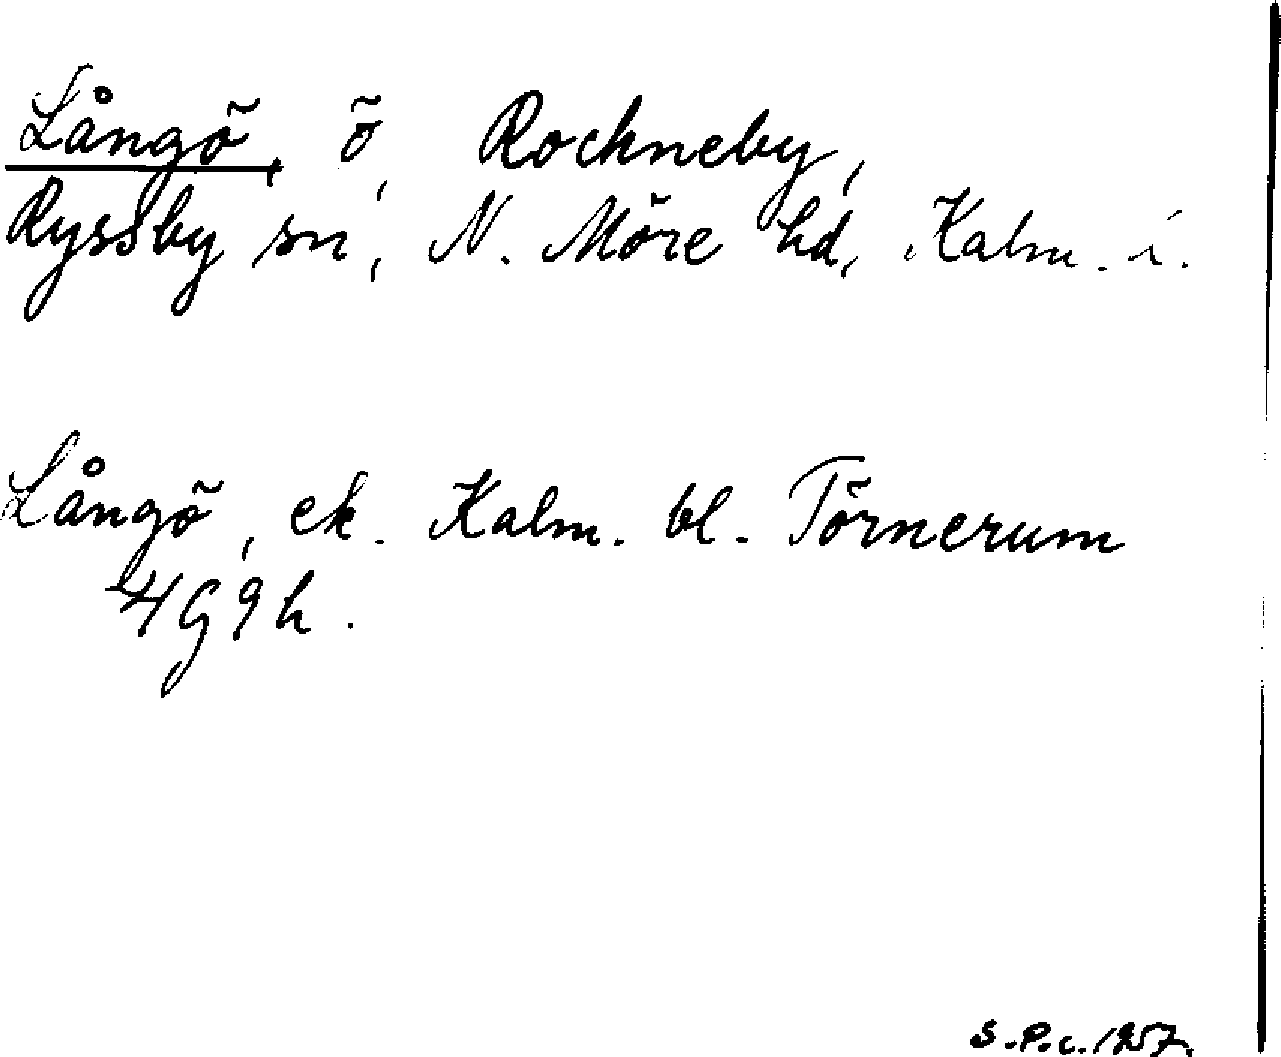 Långö, ö, Rockneby,
Ryssby sn, N. Möre hd, Kalm. l.
Långö, ek. Kalm. bl. Törnerum
4G9h.
S.P.c.